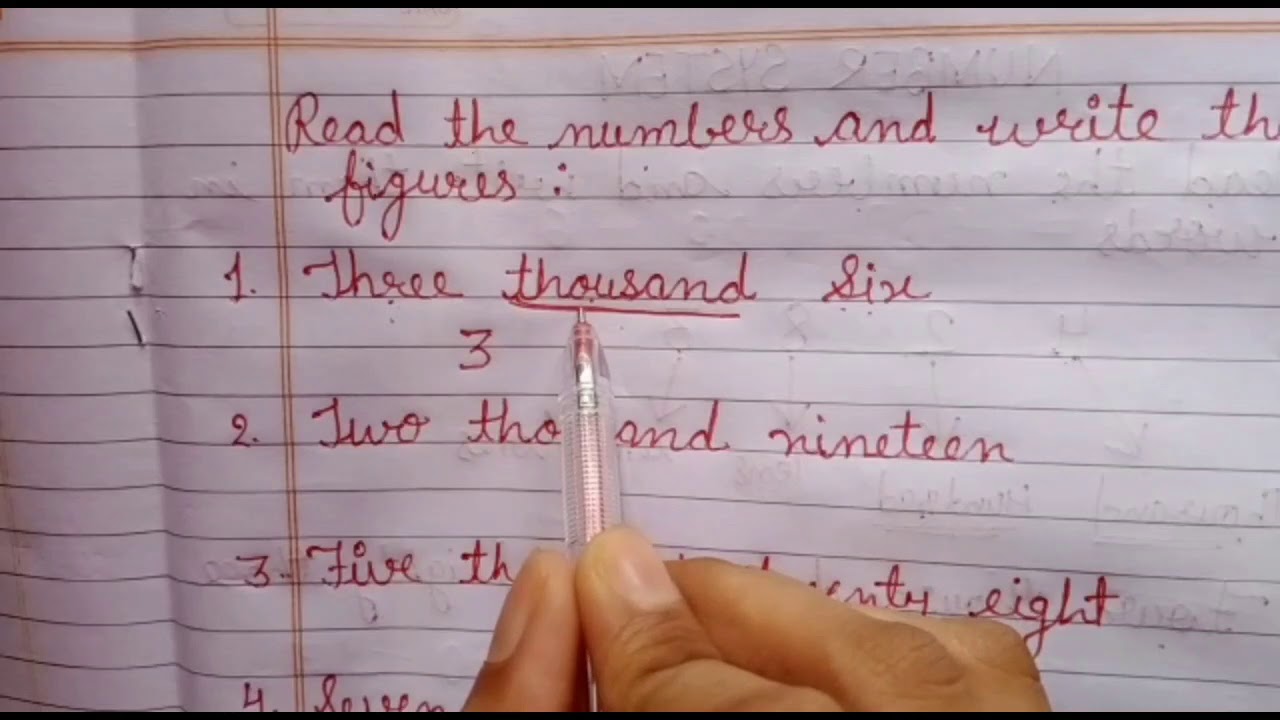 Read the numbers and write th
figures :
1. Three thousand Six
3
2. Two tho and nineteen
3. Five th enty eight
4. Seven